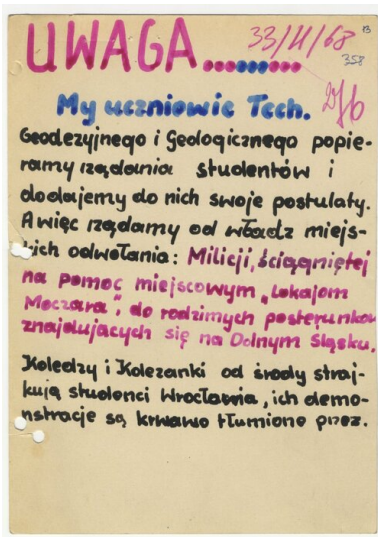 UWAGA..........
33/II/68
13
358
27/6
My uczniowie Tech.
Geodezyjnego i Geologicznego popie-
ramy rządania studentów i
dodajemy do nich swoje postulaty.
A więc rządamy od władz miejs-
kich odwołania: Milicji, ściągniętej
na pomoc miejscowym "Lokajom
Moczara", do rodzimych posterunków
znajdujących się na Dolnym Śląsku.
Koledzy i Koleżanki od środy straj-
kują studenci Wrocławia, ich demo-
nstracje są krwawo tłumione przez.